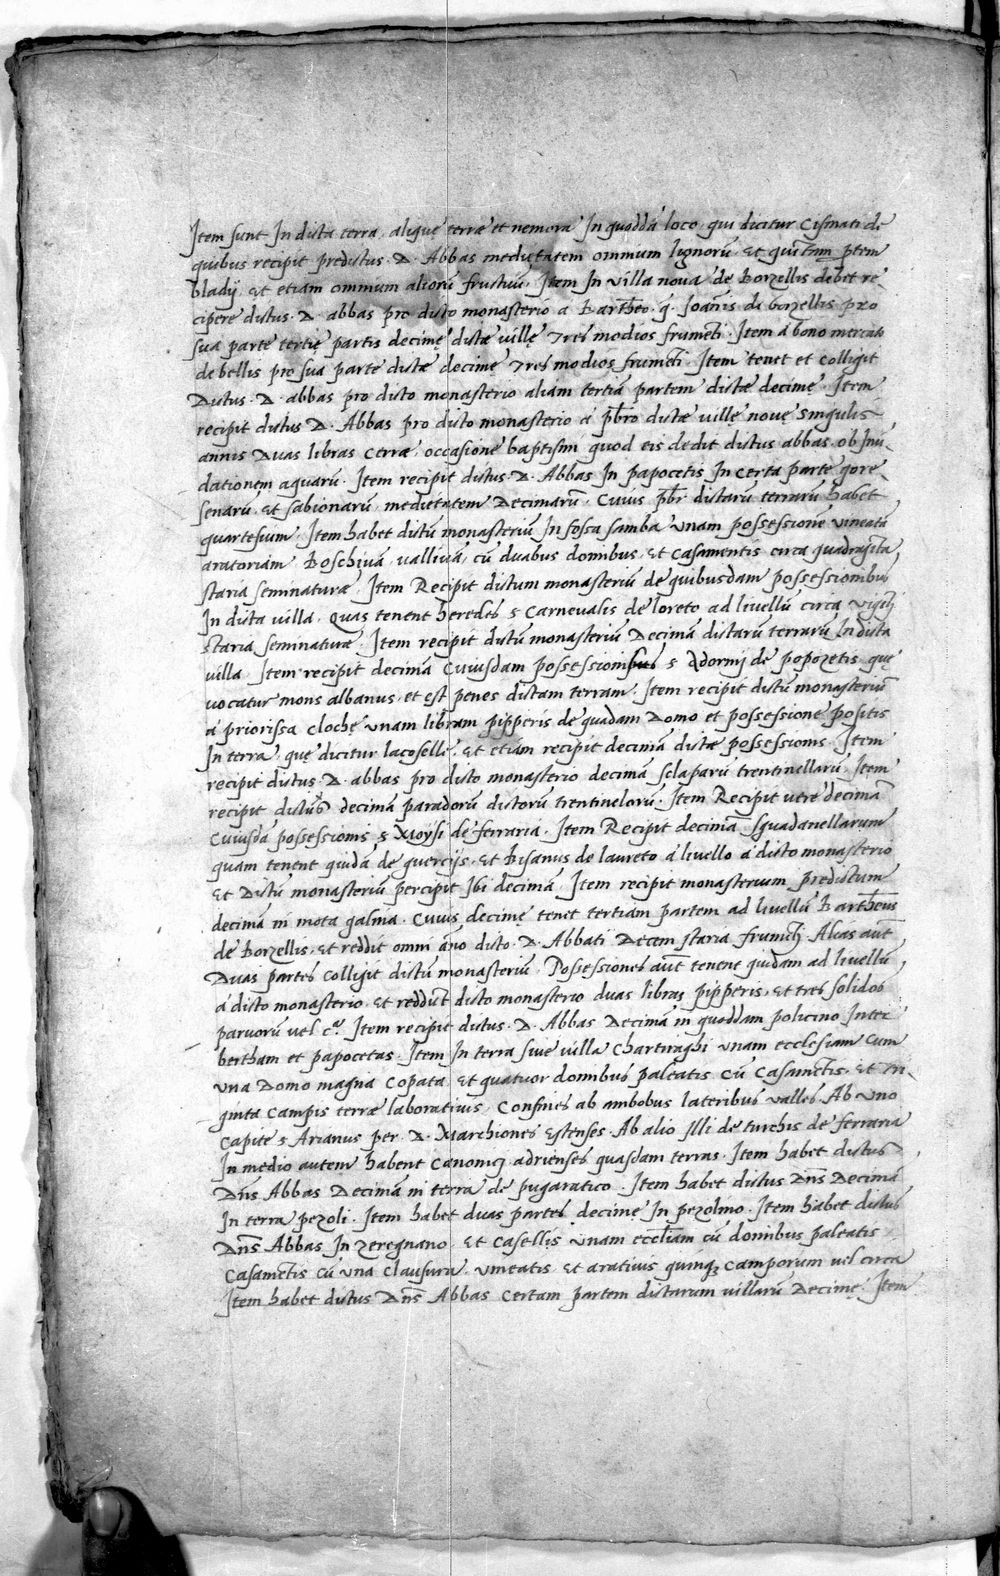 Item sunt In dicta terra, aliquę terræ et nemora In quoddā loco, qui dicitur Cismati de
quibus recipit predictus .D. Abbas medietatem omnium lignorū. Et quintam ptem
bladij et etiam omnium aliorū fructuū. Item In villa nova de Borzellis debet re=
cipere dictus .D. abbas pro dicto monasterio a Bartheo .q. Joānis de borzellis pro
sua parte tertię partis decimę dictæ villę tres modios frumēti. Item á bono mercato
de bellis pro sua parte dictæ decimę tres modios frumēti. Item tenet et colligit
Dictus .D. abbas pro dicto monasterio aliam tertiā partem dictæ decimę. Item
recipit dictus .D. Abbas pro dicto monasterio á pb̄ro dictæ villę novę singulis
annis Duas libras Cerræ, occasione baptismi quod eis dedit dictus abbas ob Inū=
dationem aquarū. Item recipit dictus .D. Abbas In papocetis In Certa parte gore
senarū, et sabionarū, medietatem Decimarū. Cuius pb̄r dictarū terrarū habet
quartesium. Item habet dictū monasteriū In fossa samba unam possessionē vineatā
aratoriam Boschivā, vallivā, cū duabus domibus, et Casamentis circa quadragīta
staria seminaturæ. Item Recipit dictum monasteriū de quibusdam possessionibus
In dicta villa, Quas tenent heredes s Carnevalis de loreto ad livellū circa vigīti
staria seminaturæ. Item recipit dictū monasteriū Decimā dictarū terrarū In dicta
villa. Item recipit decimā Cuiusdam possessionis s Adornij de popozetis quę
vocatur mons albanus, et est penes dictam terram. Item recipit dictū monasteriū
á priorissa clochę unam libram pipperis de quadam Domo et possessione positis
In terra, quę dicitur lacoselle. et etiam recipit decimā dictæ possessionis. Item
recipit dictus .D. abbas pro dicto monasterio decimā sclaparū trentinellarū. Item
recipit dictus D decimā paradorū dictorū trentinelorū. Item Recipit utre decimā
Cuiusdā possessionis s Moysi de ferraria. Item Recipit decimā squadanellarum
quam tenent quidā de quercijs, et Bisanus de laureto á livello á dicto monasterio
Et Dictū monasteriū percipit Ibi decimā. Item recipit monasterium predictum
decimā in mota galma. Cuius decimę tenet tertiam partem ad livellū Bartheus
de Borzellis, et reddit omni āno dicto .D. Abbati Decem staria frumēti Alias aūt
Duas partes colligit dictū monasteriū. Possessiones aūt tenent quidam ad livellū
á dicto monasterio, et reddūt dicto monasterio duas libras pipperis, et tres solidos
parvorū vel cᵃ. Item recipit dictus .D. Abbas Decimā in quoddam policino Inter
bertham et papocetas. Item In terra sive villa Chartiraghi unam ecclesiam cum
una Domo magna Copata, et quatuor domibus paleatis cū Casamētis, et tri=
ginta Campis terræ laborativis, Confines ab ambobus lateribus valles. Ab uno
Capite s Arianus per .D. Marchiones Estenses. Ab alio Illi de turchis de ferraria
In medio autem habent Canonici adrienses quasdam terras. Item habet dictus
Dn̄s Abbas Decimā in terra de pugaratico. Item habet dictus Dn̄s Decimā
In terra pezoli. Item habet duas partes decimę In pezolino. Item habet dictus
Dn̄s Abbas In zeregnano et Casellis unam eccliam cū domibus paleatis
Casamētis cū una Clausura, vineatis et arativis quinq; Camporum vel circa
Item habet dictus Dn̄s Abbas Certam partem dictarum villarū Decimę. Item